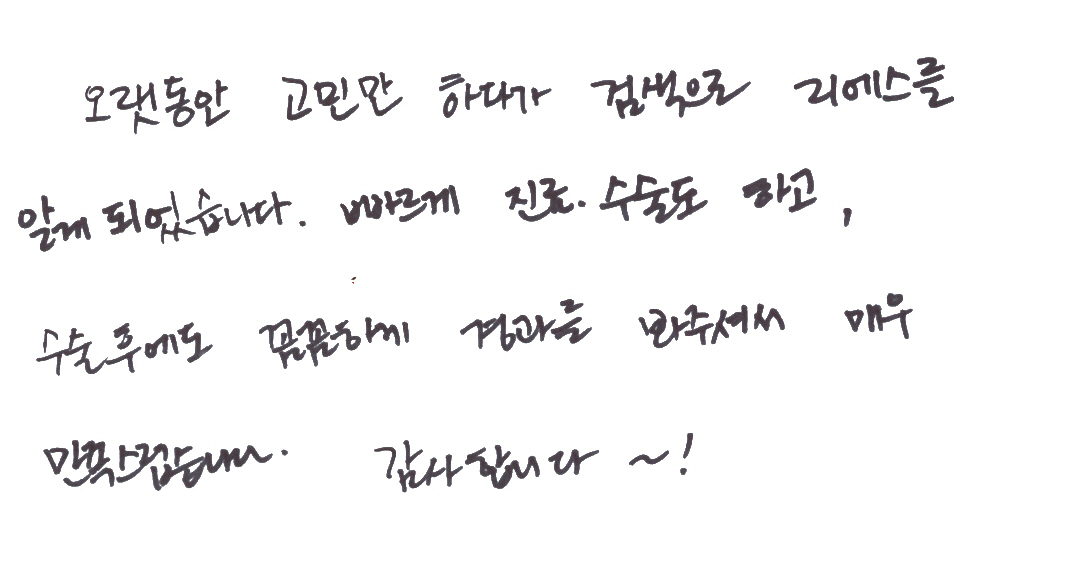 오랫동안 고민만 하다가 검색으로 리에스를
알게 되었습니다. 빠르게 진료. 수술도 하고,
수술후에도 꼼꼼하게 경과를 봐주셔서 매우
만족스럽습니다. 감사합니다 ~!